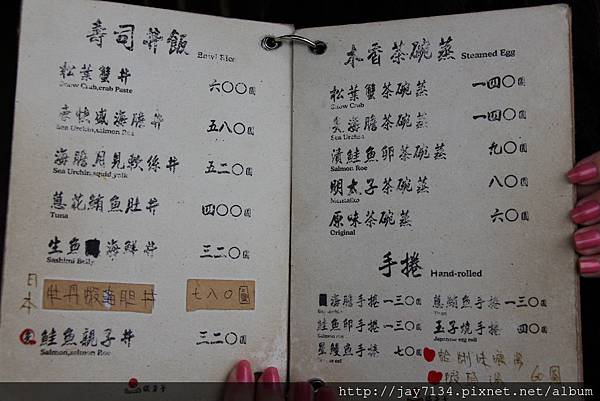 壽司丼飯 Bowl Rice
松葉蟹丼 六〇〇圓
Snow Crab,crab Paste
海膽丼 五八〇圓
Sea Urchin,salmon Roe
海膽月見軟絲丼 五二〇圓
Sea Urchin,squid,yolk
蔥花鮪魚肚丼 四〇〇圓
Tuna
生魚 海鮮丼 三二〇圓
Sashimi Belly
日本
牡丹蝦海胆丼 七八〇圓
鮭魚親子丼 三二〇圓
Salmon,salmon Roe
木香茶碗蒸 Steamed Egg
松葉蟹茶碗蒸 一四〇圓
Snow Crab
海膽茶碗蒸 一四〇圓
Sea Urchin
漬鮭魚卵茶碗蒸 九〇圓
Salmon Roe
明太子茶碗蒸 八〇圓
Mentaiko
原味茶碗蒸 六〇圓
Original
手捲 Hand-rolled
海膽手捲 一三〇圓
鮭魚卵手捲 一三〇圓
Salmon roe
星鰻魚手捲 七〇圓
蔥鮪魚手捲 一三〇圓
Tuna
玉子燒手捲 四〇圓
Japanese egg roll
60圓
http://jay7134.pixnet.net/album